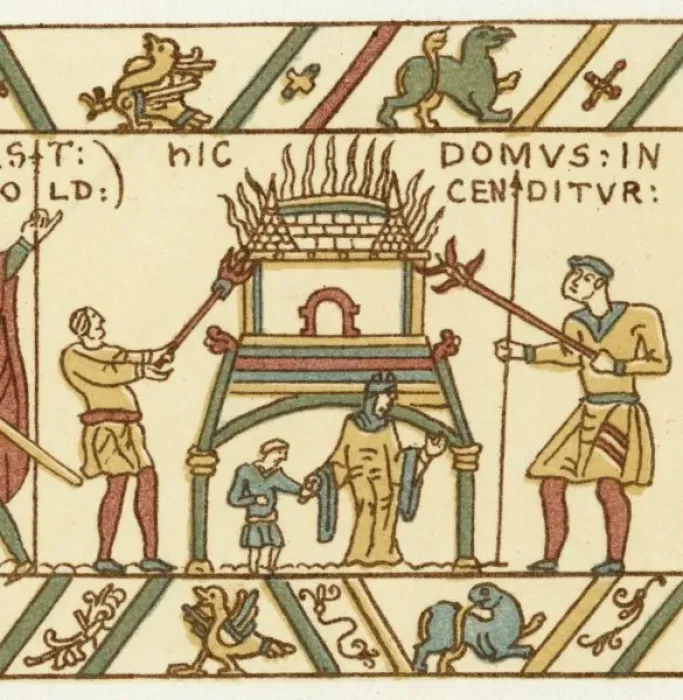 ST:) hIC DOMVS:IN
O LD:) CENDITVR: